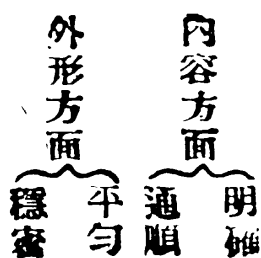 內容方面
明確
通順
外形方面
平勻
穩密